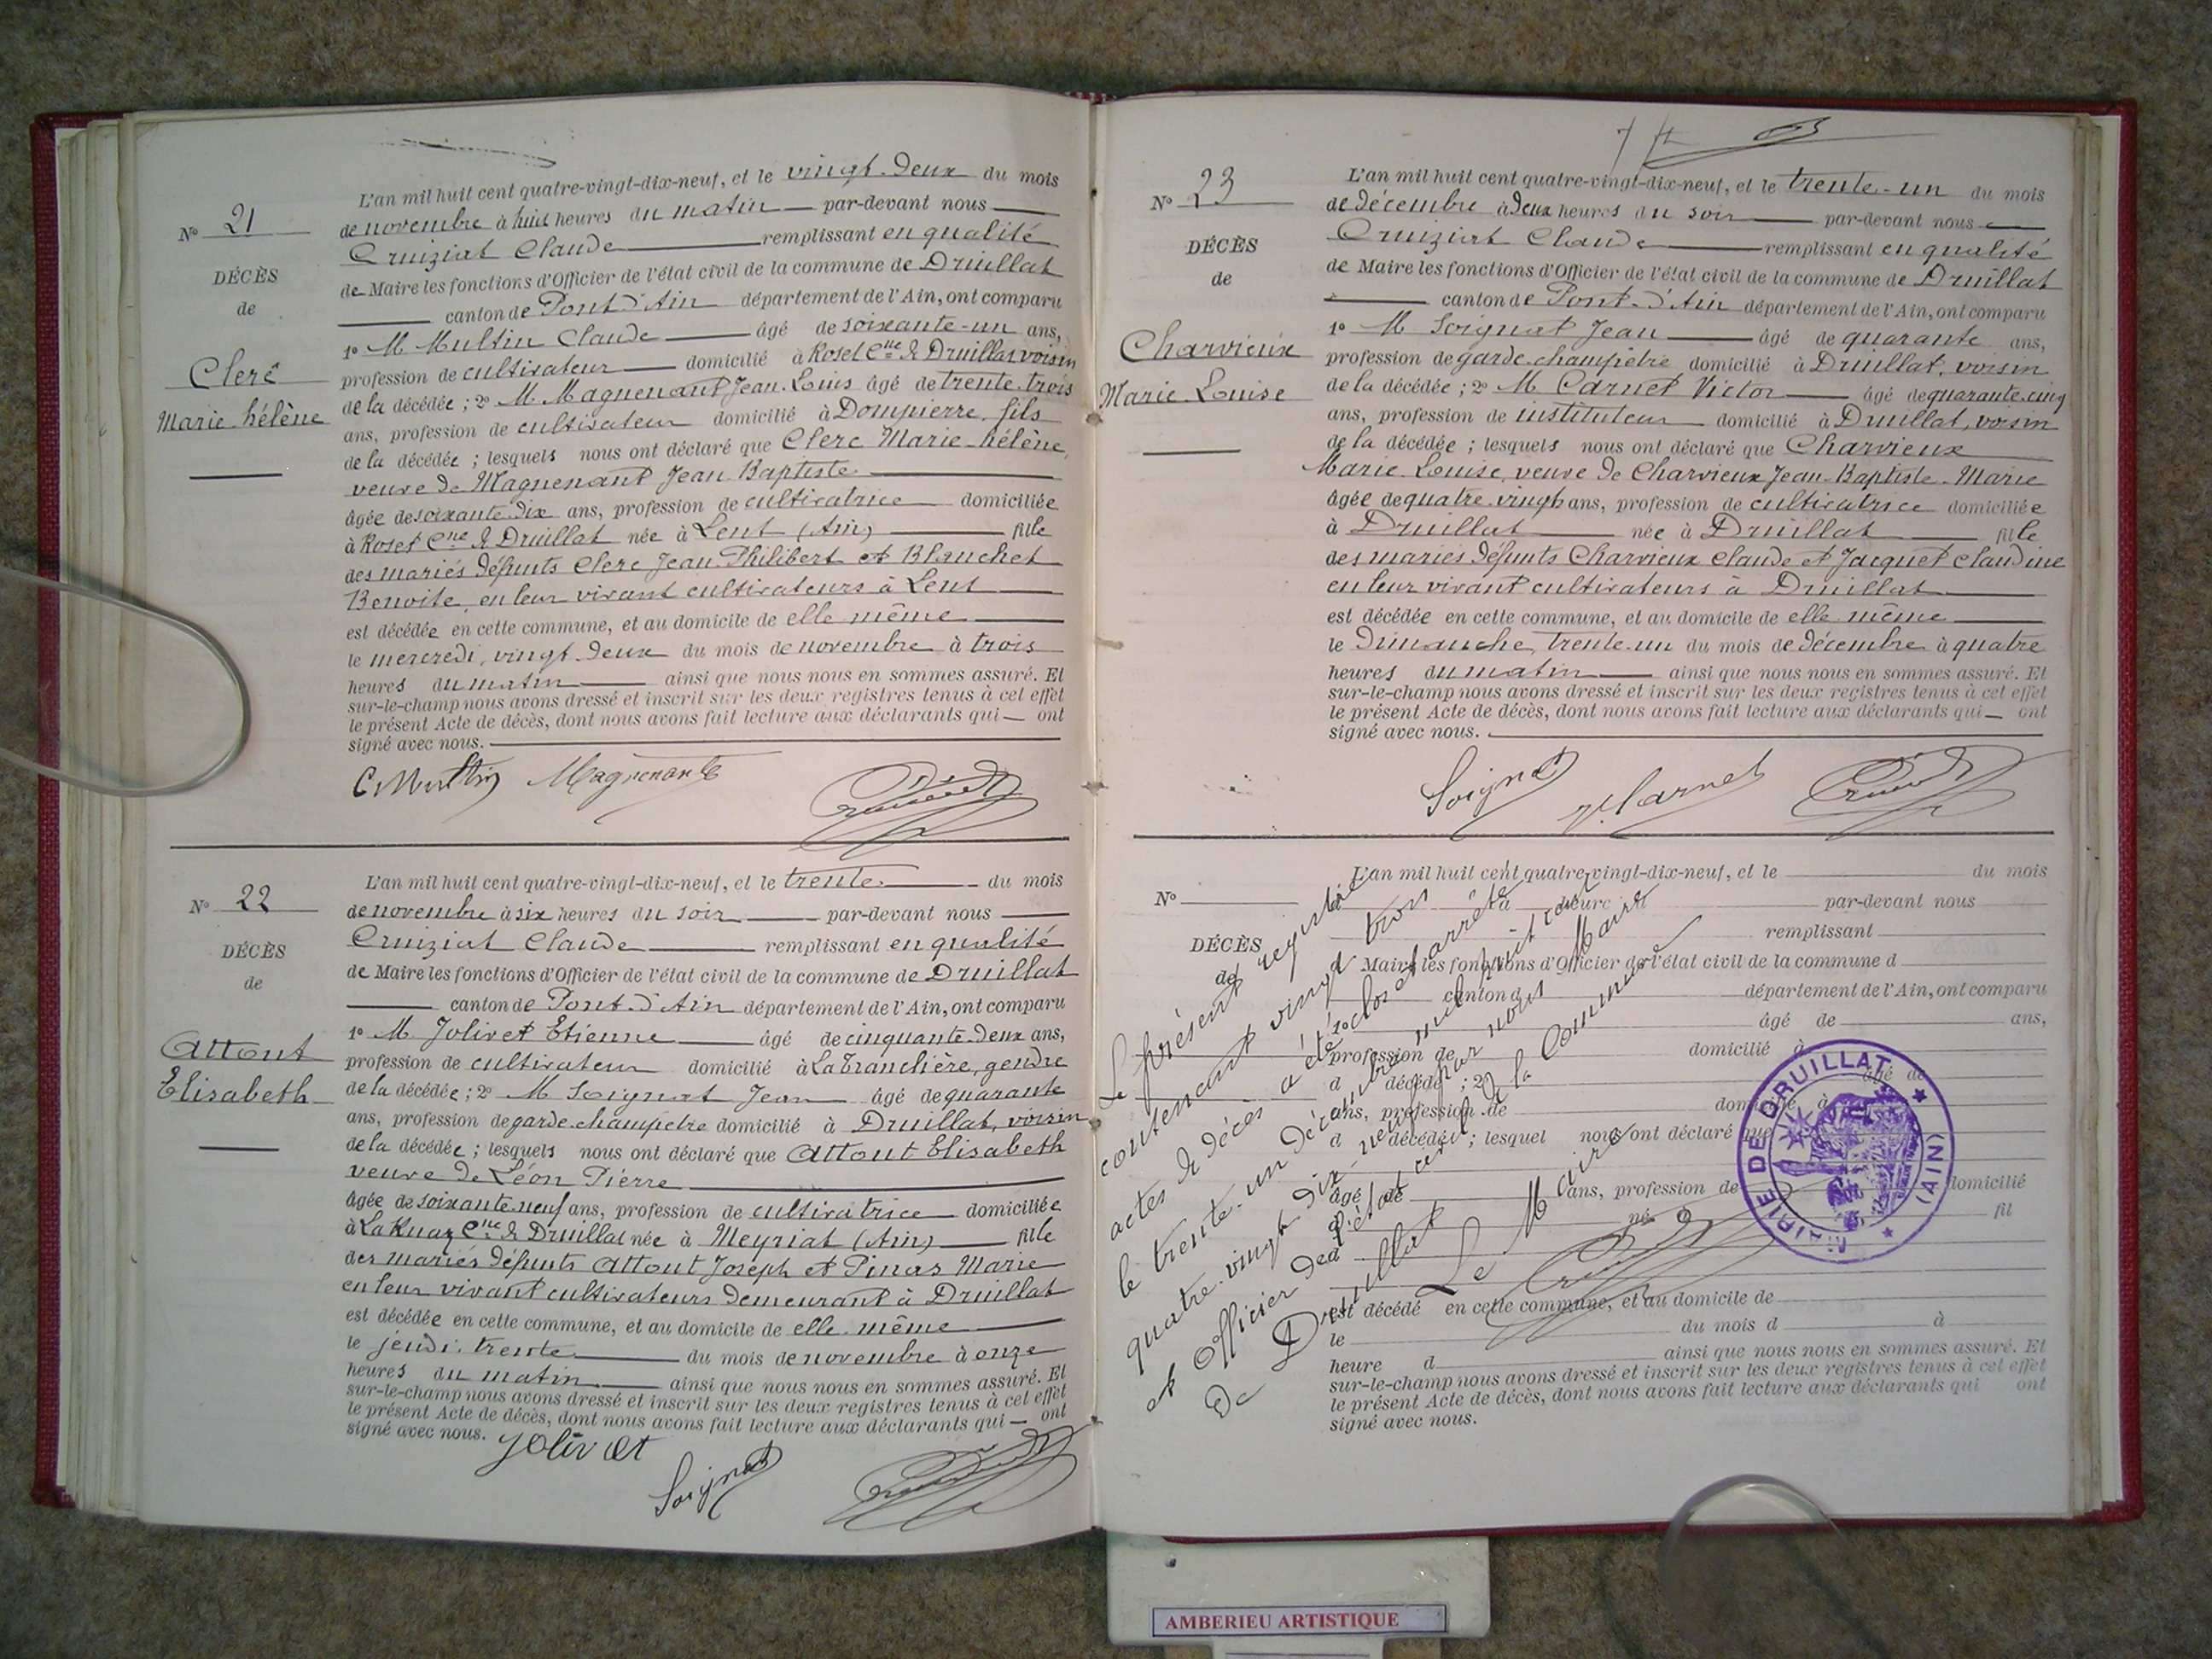 L'an mil huit cent quatre-vingt-dix-neuf, et le vingt-deux du mois
de novembre à huit heures du matin par-devant nous
Cruiziat Claude remplissant en qualité
de Maire les fonctions d'Officier de l'état civil de la commune de Druillat
canton de Pont-d'Ain département de l'Ain, ont comparu
1º M Multin Claude âgé de soixante-un ans,
profession de cultivateur domicilié à Roset Cne de Druillat voisin
de la décédée ; 2º M. Magnenant Jean-Louis âgé de trente-trois
ans, profession de cultivateur domicilié à Dompierre, fils
de la décédée ; lesquels nous ont déclaré que Clerc Marie-hélène,
veuve de Magnenant Jean Baptiste
âgée de soixante-dix ans, profession de cultivatrice domiciliée
à Roset Cne de Druillat née à Lent (Ain) fille
des mariés défunts Clerc Jean-Philibert et Blanchet
Benoite, en leur vivant cultivateurs à Lent
est décédée en cette commune, et au domicile de elle même
le mercredi, vingt-deux du mois de novembre à trois
heures du matin ainsi que nous nous en sommes assuré. Et
sur-le-champ nous avons dressé et inscrit sur les deux registres tenus à cet effet
le présent Acte de décès, dont nous avons fait lecture aux déclarants qui ont
signé avec nous.
C. Multin Magnenant
Nº 21
DÉCÈS
de
Clerc
Marie-hélène
L'an mil huit cent quatre-vingt-dix-neuf, et le trente du mois
de novembre à six heures du soir par-devant nous
Cruiziat Claude remplissant en qualité
de Maire les fonctions d'Officier de l'état civil de la commune de Druillat
canton de Pont-d'Ain département de l'Ain, ont comparu
1º M Jolivet Etienne âgé de cinquante-deux ans,
profession de cultivateur domicilié à La Tranclière, gendre
de la décédée ; 2º M Soignat Jean âgé de quarante
ans, profession de garde-champêtre domicilié à Druillat, voisin
de la décédée ; lesquels nous ont déclaré que Attout Elisabeth
veuve de Léon Pierre
âgée de soixante-neuf ans, profession de cultivatrice domiciliée
à La Ruaz Cne de Druillat née à Meyriat (Ain) fille
des mariés défunts Attout Joseph et Marie
en leur vivant cultivateurs demeurant à Druillat
est décédée en cette commune, et au domicile de elle-même
le jeudi, trente du mois de novembre à onze
heures du matin ainsi que nous nous en sommes assuré. Et
sur-le-champ nous avons dressé et inscrit sur les deux registres tenus à cet effet
le présent Acte de décès, dont nous avons fait lecture aux déclarants qui ont
signé avec nous.
Jolivet
Soignat
Nº 22
DÉCÈS
de
Attout
Elisabeth
L'an mil huit cent quatre-vingt-dix-neuf, et le trente-un du mois
de décembre à deux heures du soir par-devant nous
Cruiziat Claude remplissant en qualité
de Maire les fonctions d'Officier de l'état civil de la commune de Druillat
canton de Pont-d'Ain département de l'Ain, ont comparu
1º M Soignat Jean âgé de quarante ans,
profession de garde-champêtre domicilié à Druillat, voisin
de la décédée ; 2º M. Carnet Victor âgé de quarante-cinq
ans, profession de instituteur domicilié à Druillat, voisin
de la décédée ; lesquels nous ont déclaré que Charvieux
Marie-Louise, veuve de Charvieux Jean-Baptiste-Marie
âgée de quatre-vingt ans, profession de cultivatrice domiciliée
à Druillat née à Druillat fille
des mariés défunts Charvieux Claude et Jacquet Claudine
en leur vivant cultivateurs à Druillat
est décédée en cette commune, et au domicile de elle-même
le Dimanche, trente-un du mois de décembre à quatre
heures du matin ainsi que nous nous en sommes assuré. Et
sur-le-champ nous avons dressé et inscrit sur les deux registres tenus à cet effet
le présent Acte de décès, dont nous avons fait lecture aux déclarants qui ont
signé avec nous.
Soignat V. Carnet
Nº 23
DÉCÈS
de
Charvieux
Marie-Louise
L'an mil huit cent quatre-vingt-dix-neuf, et le du mois
à heure d par-devant nous
remplissant
d Maire les fonctions d'Officier de l'état civil de la commune d
canton d département de l'Ain, ont comparu
1º âgé de ans,
profession de domicilié à
d décédé ; 2º âgé de
ans, profession de domicilié à
d décédé ; lesquel nous ont déclaré que
âgé de ans, profession de domicilié
à né à fil
d
est décédé en cette commune, et au domicile de
le du mois d à
heure d ainsi que nous nous en sommes assuré. Et
sur-le-champ nous avons dressé et inscrit sur les deux registres tenus à cet effet
le présent Acte de décès, dont nous avons fait lecture aux déclarants qui ont
signé avec nous.
Nº
DÉCÈS
de
Le présent registre
contenant vingt trois
actes de décès a été clos et arrêté
le trente-un Décembre mil huit cent
quatre-vingt-dix-neuf par nous Maire
et Officier de l'état civil de la Commune
de Druillat
Le Maire
MAIRIE DE DRUILLAT
(AIN)
AMBERIEU ARTISTIQUE